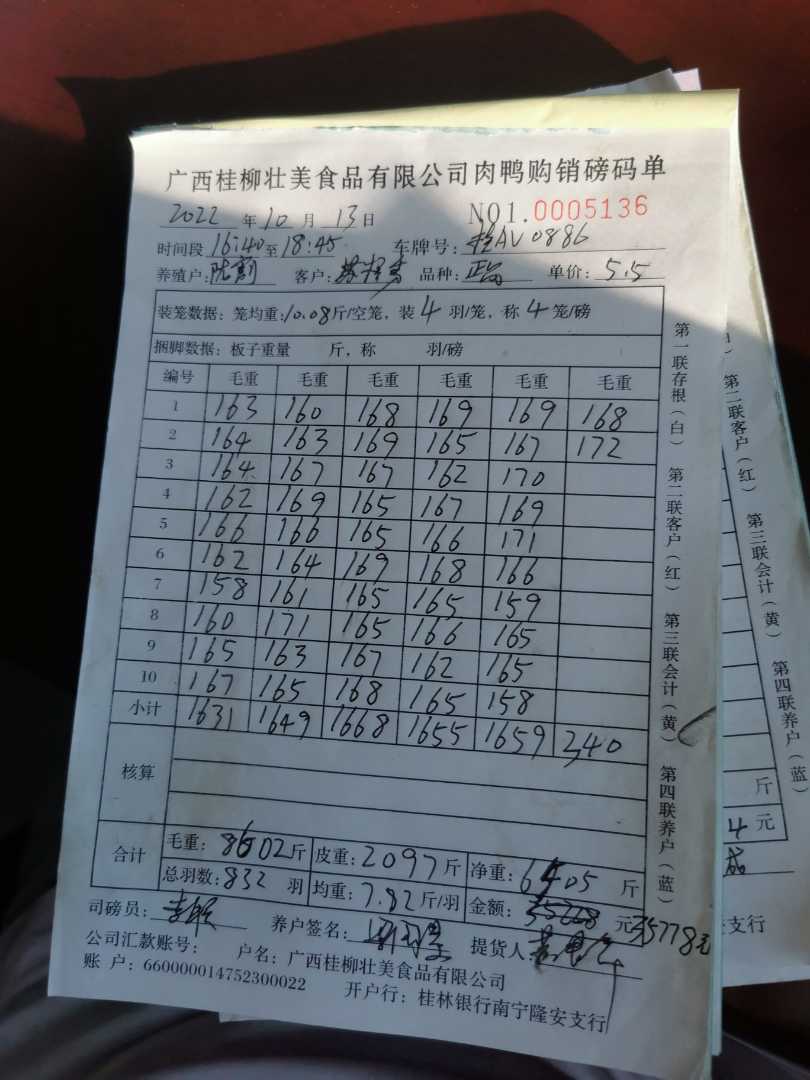 广西桂柳壮美食品有限公司肉鸭购销磅码单
2022 年 10 月 13 日 NO1.0005136
时间段 16:40 至 18:45 车牌号: 桂AV0886
养殖户: 客户: 品种: 单价: 5.5
装笼数据: 笼均重: 10.08 斤/空笼, 装 4 羽/笼, 称 4 笼/磅
捆脚数据: 板子重量 斤, 称 羽/磅
编号 毛重 毛重 毛重 毛重 毛重 毛重
1 163 160 168 169 169 168
2 164 163 169 165 167 172
3 164 167 167 162 170
4 162 169 165 167 169
5 166 166 165 166 171
6 162 164 169 168 166
7 158 161 165 165 159
8 160 171 165 166 165
9 165 163 167 162 165
10 167 165 168 165 158
小计 1631 1649 1668 1655 1659 340
核算
合计 毛重: 8602 斤 皮重: 2097 斤 净重: 6505 斤
总羽数: 832 羽 均重: 7.82 斤/羽 金额: 元 35778元
司磅员: 养户签名: 提货人
公司汇款账号: 户名: 广西桂柳壮美食品有限公司
账 户: 660000014752300022 开户行: 桂林银行南宁隆安支行
第一联存根(白) 第二联客户(红) 第三联会计(黄) 第四联养户(蓝)
第二联客户(红) 第三联会计(黄) 第四联养户(蓝)
斤
4 元
成
安支行